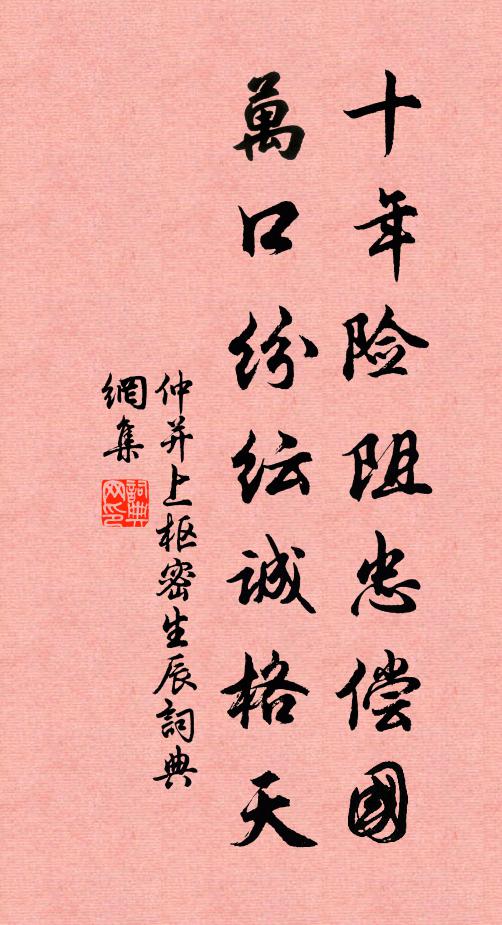 十年险阻忠偿國
萬口纷纭诚格天
仲并上枢密生辰詞典
網集
詞典
网印